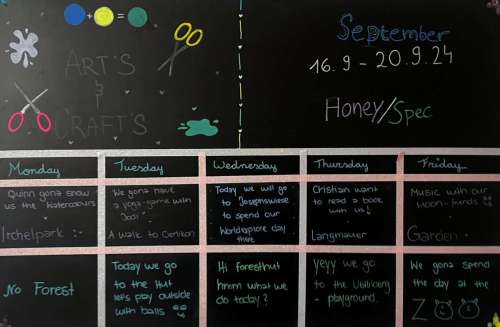 + =
ART'S
&
CRAFT'S
September
16.9 - 20.9.24
Honey/Spec
Monday
Tuesday
Wednesday
Thursday
Friday
Quinn gona show
us the watercolours
Irchelpark
We gona have
a yoga-game with
Jodi
A walk to Central
Today we will go
to Josephswiese
to spend our
Worldexplore day
there
Cristian want
to read a book
with us!
Langmauer
Music with our
moon-funds
Garden
No Forest
Today we go
to the Hut
let's play outside
with balls
Hi foresthut
hmm what we
do today?
yeyy we go
to the
- playground.
We gona spend
the day at the
ZOO